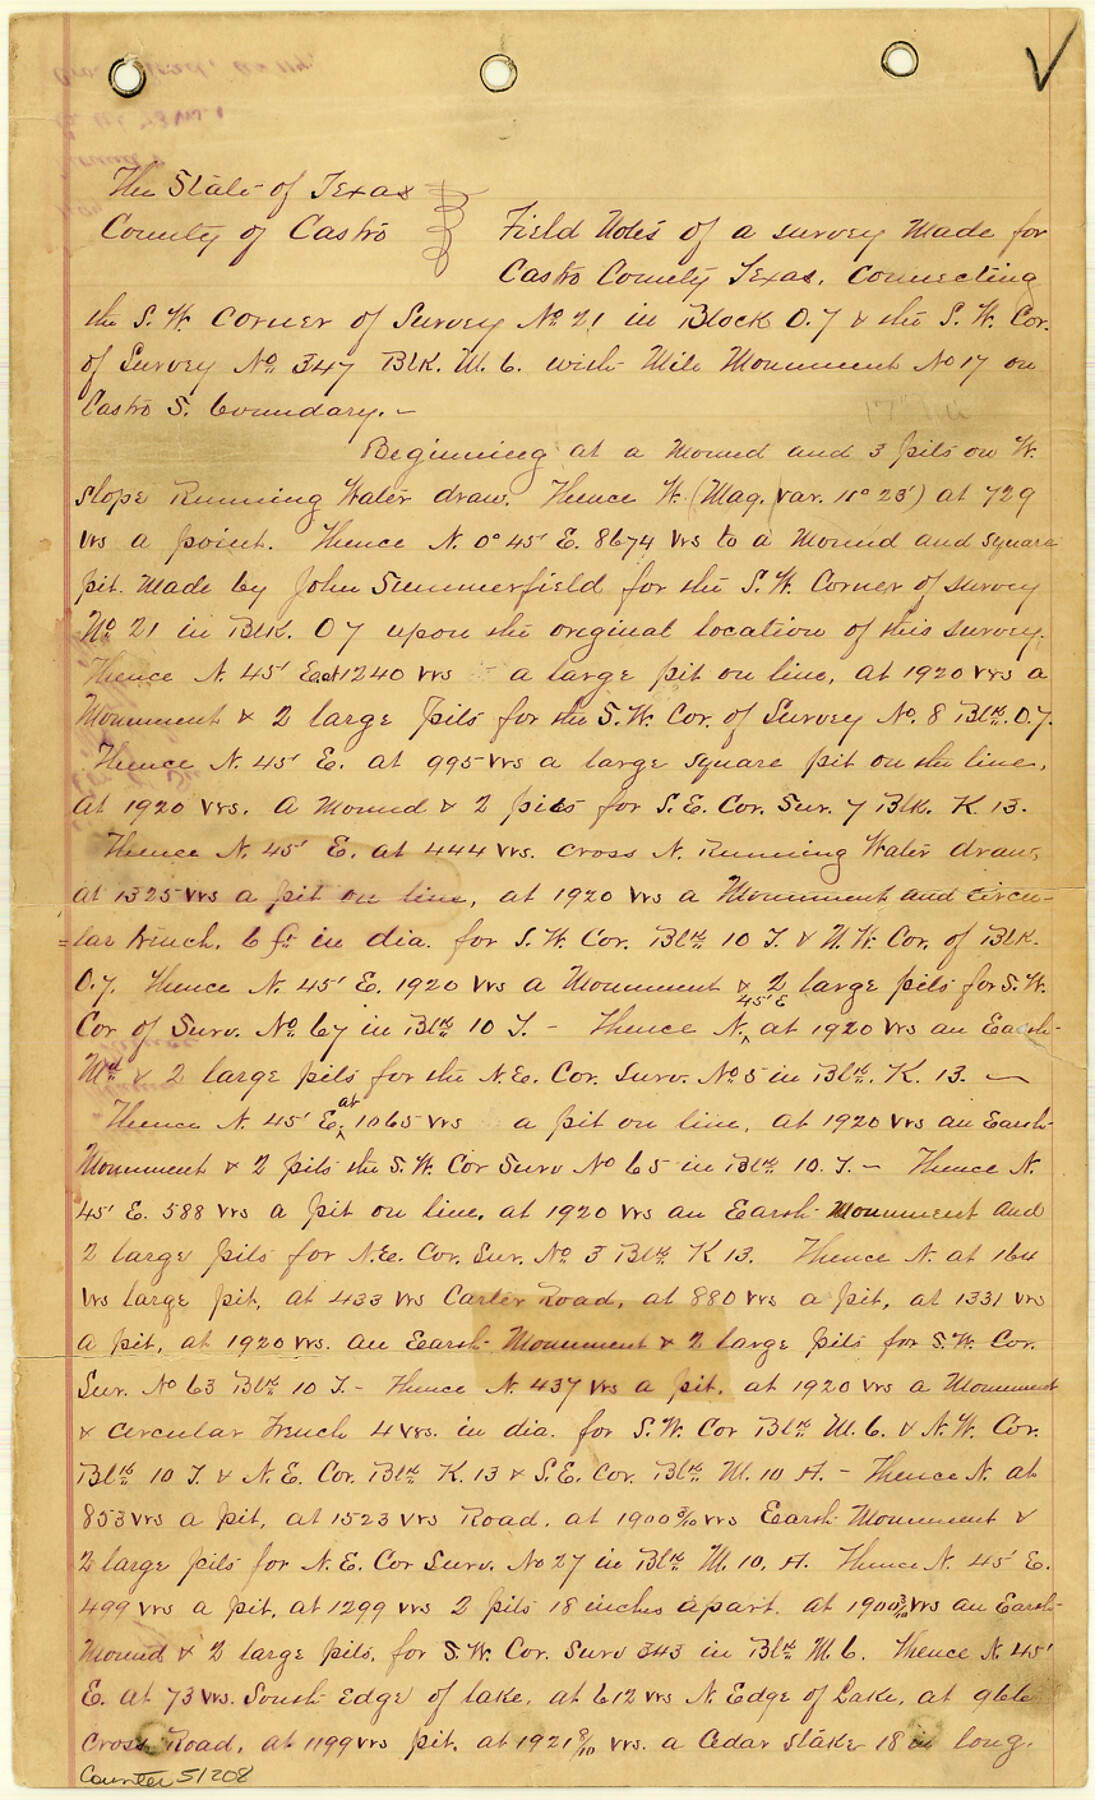 The State of Texas
County of Castro
Field Notes of a survey Made for
Castro County Texas. Connecting
the S. W. Corner of Survey No 21 in Block O.7 & the S. W. Cor.
of Survey No. 347 Blk. M. 6. with Mile Monument No 17 on
Castro S. boundary. –
Beginning at a Mound and 3 pits on W.
slope Running Water draw. Thence W. (Mag. var. 11° 23') at 729
vrs a point. Thence N. 0° 45' E. 8674 vrs to a Mound and square
pit. Made by John Summerfield for the S. W. Corner of survey
No 21 in Blk. O 7 upon the original location of this survey.
Thence N. 45' E. at 1240 vrs a large pit on line, at 1920 vrs a
Monument & 2 large Pits for the S. W. Cor. of Survey No. 8 Blk. O.7.
Thence N. 45' E. at 995 vrs a large square pit on the line,
at 1920 vrs. a Mound & 2 pits for S. E. Cor. Sur. 7 Blk. K. 13.
Thence N. 45' E. at 444 vrs. cross N. Running Water draw,
at 1325 vrs a pit on line, at 1920 vrs a Monument and circu-
=lar trench. 6 ft in dia. for S. W. Cor. Blk 10 T. & N. W. Cor. of Blk.
O.7. Thence N. 45' E. 1920 vrs a Monument & 2 large pits for S. W.
Cor of Surv. No 67 in Blk 10 T. – Thence N. 45' E at 1920 vrs an Earth
Mt & 2 large pits for the N.E. Cor. Surv. No 5 in Blk. K. 13. –
Thence N. 45' E. at 1065 vrs a pit on line, at 1920 vrs an Earth
Monument & 2 pits the S. W. Cor Surv No 65 in Blk 10. T. – Thence N.
45' E. 588 vrs a pit on line. at 1920 vrs an Earth Monument and
2 large pits for N.E. Cor. Sur. No 3 Blk K 13. Thence N. at 164
vrs large pit, at 433 vrs Carter Road, at 880 vrs a pit, at 1331 vrs
a pit, at 1920 vrs. an Earth Monument & 2 large pits for S. W. Cor.
Sur. No 63 Blk 10 T. – Thence N. 437 vrs a pit. at 1920 vrs a Monument
& circular Trench 4 vrs. in dia. for S. W. Cor Blk M. 6. & N. W. Cor.
Blk 10 T. & N. E. Cor. Blk K. 13 & S. E. Cor. Blk M. 10 A. – Thence N. at
853 vrs a pit, at 1523 vrs Road. at 1900 3/10 vrs Earth Monument &
2 large pits for N. E. Cor Surv. No 27 in Blk M. 10. A. Thence N. 45' E.
499 vrs a pit, at 1299 vrs 2 pits 18 inches apart. at 1900 3/10 vrs an Earth
Mound & 2 large pits, for S. W. Cor. Surv 343 in Blk M. 6. Thence N. 45'
E. at 73 vrs. South Edge of lake, at 612 vrs N. Edge of Lake, at
cross Road, at 1199 vrs pit. at 1921 8/10 vrs. a Cedar stake 18 in long.
Counter 51208